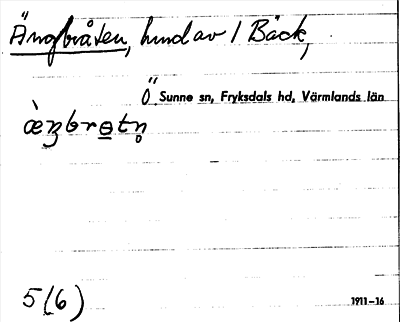 Ängbråten, hmd av 1 Bäck,
Ö Sunne sn, Fryksdals hd, Värmlands län
5(6)
1911–16